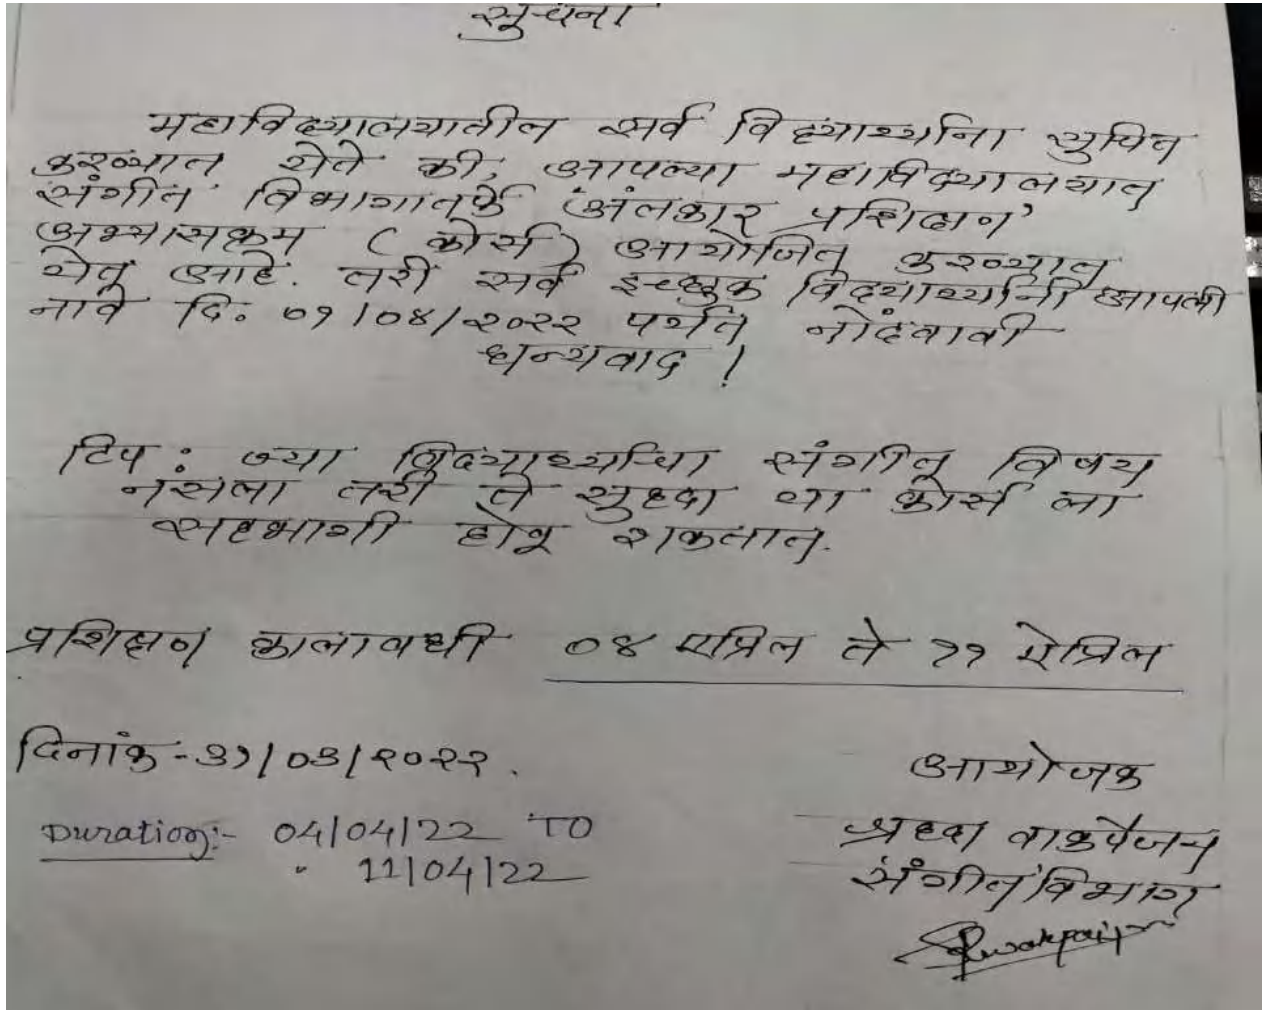 सुचना
महाविद्यालयातील सर्व विद्यार्थ्यांना सुचित
करण्यात येते की, आपल्या महाविद्यालयात
संगीत विभागातर्फे 'अंलकार प्रशिक्षण'
अभ्यासक्रम (कोर्स) आयोजित करण्यात
येत आहे. तरी सर्व इच्छुक विद्यार्थ्यांनी आपली
नावे दि. ०१/०४/२०२२ पर्यंत नोंदवावी
धन्यवाद !
टिप : ज्या विद्यार्थ्यांचा संगीत विषय
नसला तरी ते सुध्दा या कोर्स ला
सहभागी होवू शकतात.
प्रशिक्षण कालावधी ०४ एप्रिल ते ११ ऐप्रिल
दिनांक - ३१/०३/२०२२.
आयोजक
Duration:- 04/04/22 TO
11/04/22
श्रध्दा वाकपैजन
संगीत विभाग